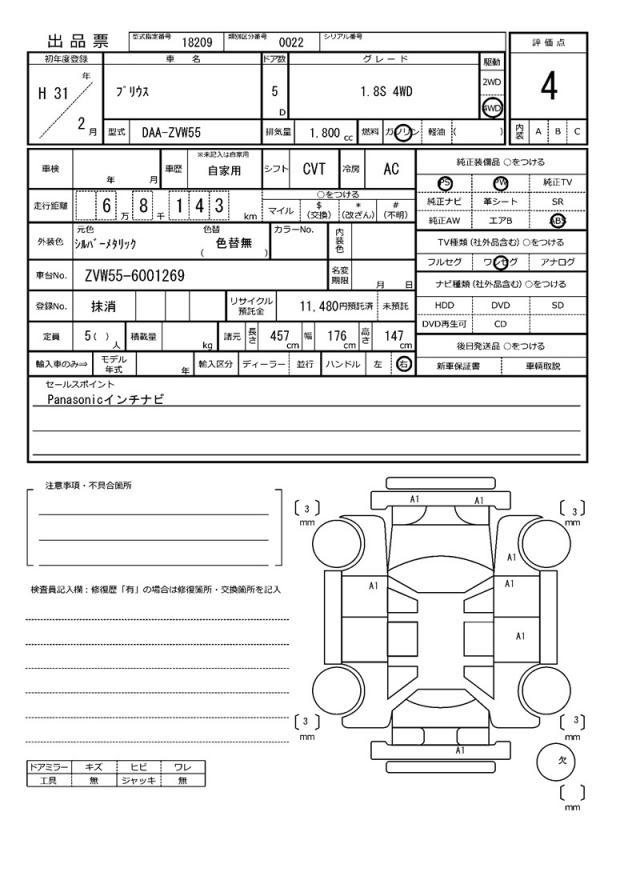 出品票 型式指定番号 18209 類別区分番号 0022 シリアル番号
評価点
4
内装 A B C
初年度登録 車名 ドア数 グレード 駆動
H 31 年 2 月 プリウス 5 D 1.8S 4WD 2WD 4WD
型式 DAA-ZVW55 排気量 1.800 cc 燃料 ガソリン 軽油 ( )
車検 年 月 車歴 ※未記入は自家用 自家用 シフト CVT 冷房 AC
走行距離 6 万 8 千 1 4 3 km ○をつける マイル $ (交換) * (改ざん) # (不明)
外装色 元色 シルバーメタリック 色替 ( 色替無 ) カラーNo. 内装色
車台No. ZVW55-6001269 名変期限 月 日
登録No. 抹消 リサイクル預託金 11,480円預託済 未預託
定員 5( ) 人 積載量 kg 諸元 長さ 457 cm 幅 176 cm 高さ 147 cm
輸入車のみ⇒ モデル年式 年 輸入区分 ディーラー 並行 ハンドル 左 右
純正装備品 ○をつける
PS PW 純正TV
純正ナビ 革シート SR
純正AW エアB ABS
TV種類 (社外品含む) ○をつける
フルセグ ワンセグ アナログ
ナビ種類 (社外品含む) ○をつける
HDD DVD SD
DVD再生可 CD
後日発送品 ○をつける
新車保証書 車輌取説
セールスポイント
Panasonicインチナビ
注意事項・不具合箇所
検査員記入欄:修復歴「有」の場合は修復箇所・交換箇所を記入
ドアミラー キズ ヒビ ワレ
工具 無 ジャッキ 無
A1 A1
3 mm 3 mm
A1
A1 A1
A1
3 mm 3 mm
A1
欠
mm